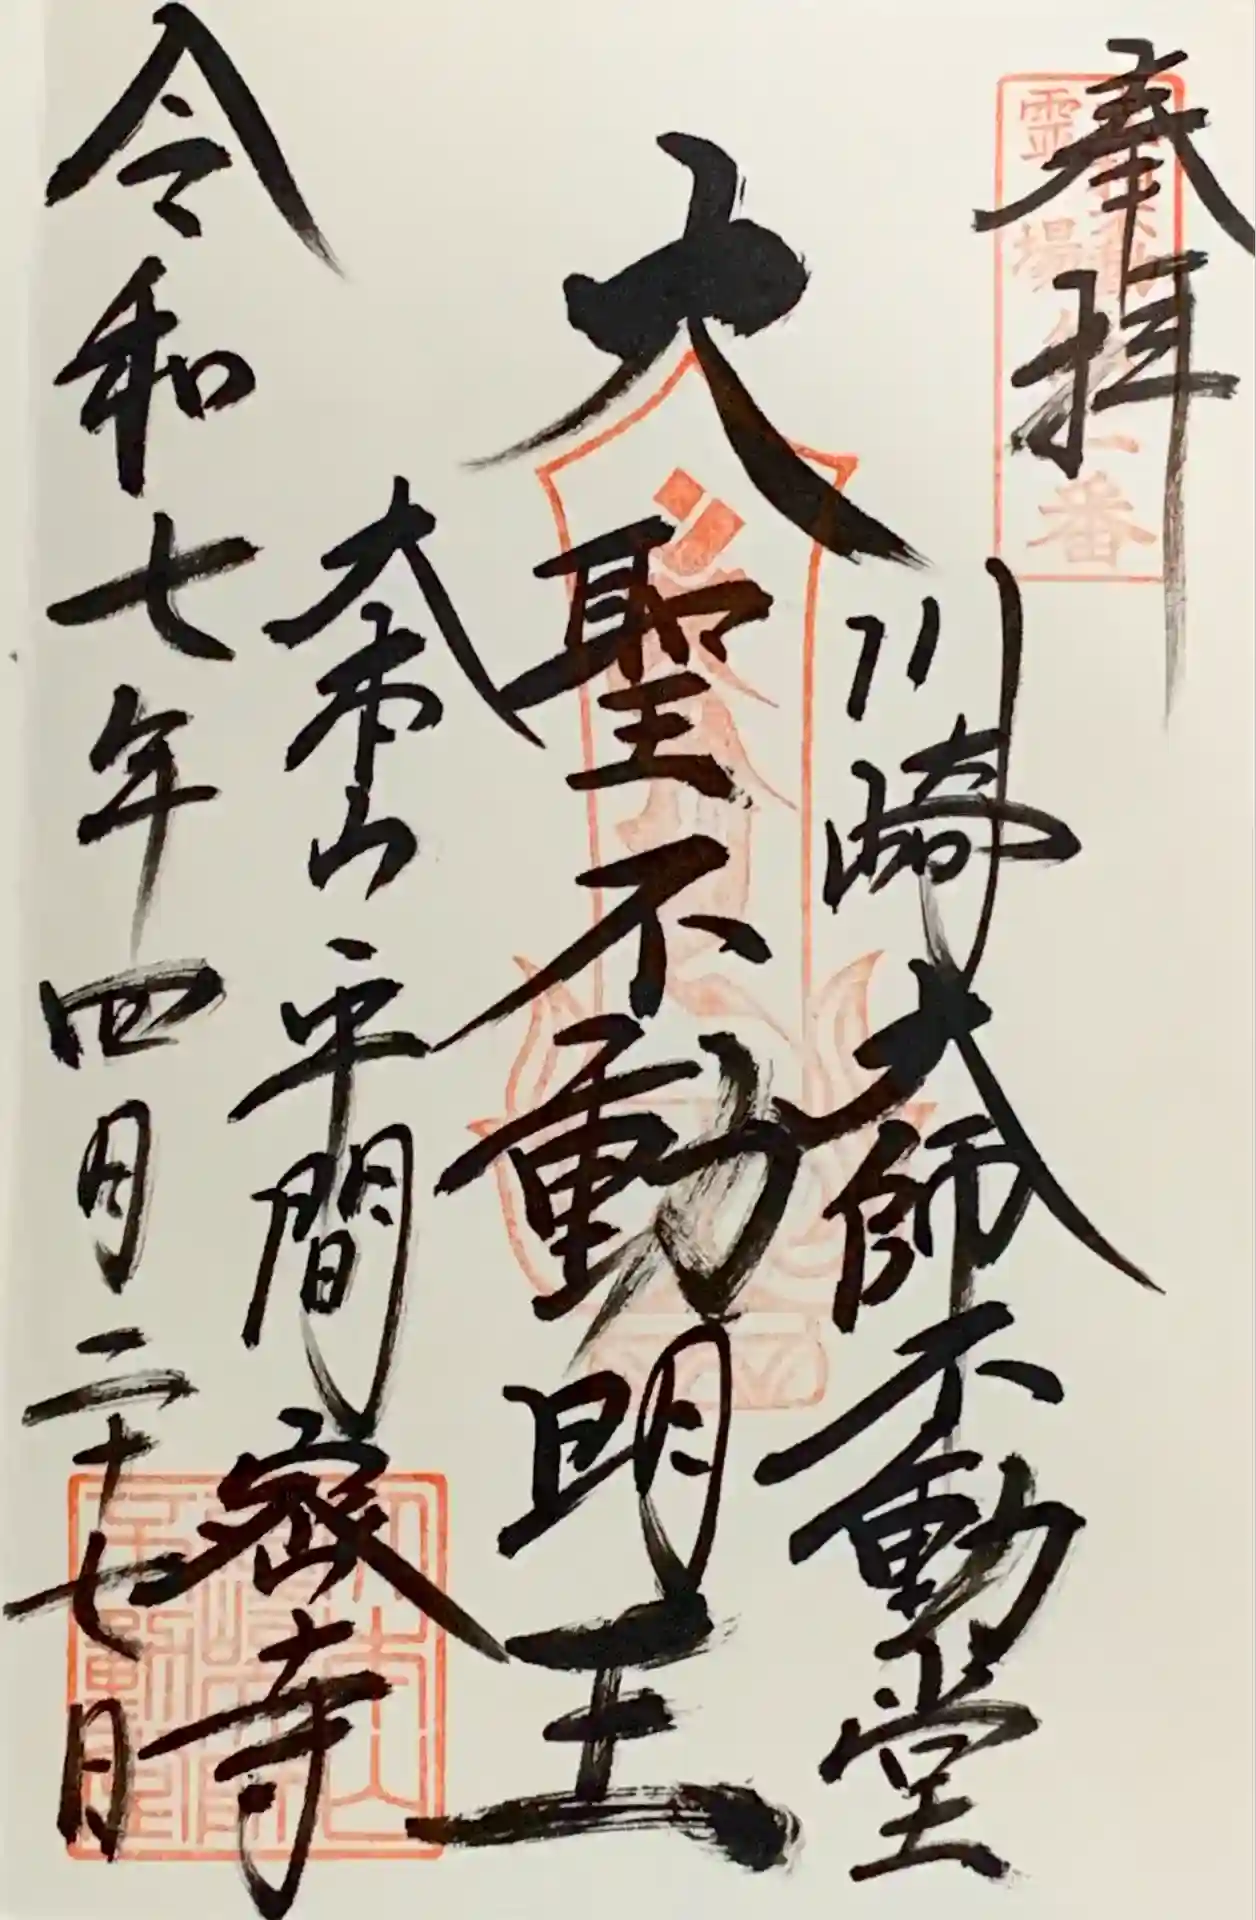 奉拝
川崎大師不動堂
大聖不動明王
金剛山平間寺
令和七年四月二十七日
霊場
番